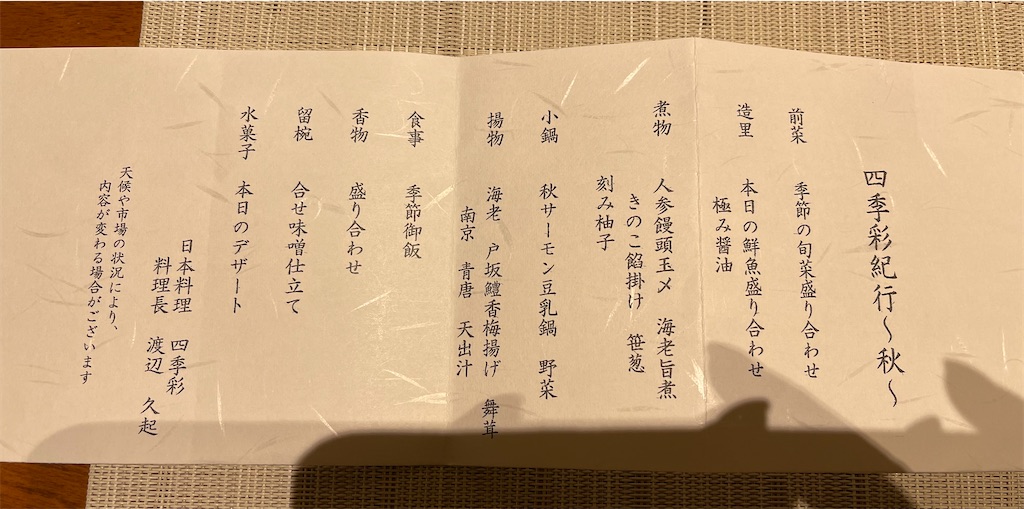 四季彩紀行～秋～
前菜 季節の旬菜盛り合わせ
造里 本日の鮮魚盛り合わせ
極み醤油
煮物 人参饅頭玉〆 海老旨煮
きのこ餡掛け 笹葱
刻み柚子
小鍋 秋サーモン豆乳鍋 野菜
揚物 海老 戸坂鱧香梅揚げ 舞茸
南京 青唐 天出汁
食事 季節御飯
香物 盛り合わせ
留椀 合せ味噌仕立て
水菓子 本日のデザート
日本料理 四季彩
料理長 渡辺 久起
天候や市場の状況により、
内容が変わる場合がございます